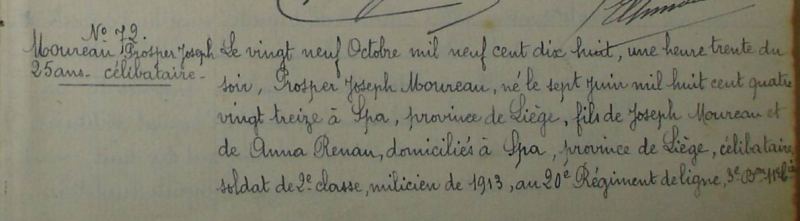 No 72.
Moureau Prosper Joseph
25 ans - célibataire -
Le vingt neuf Octobre mil neuf cent dix huit, une heure trente du
soir, Prosper Joseph Moureau, né le sept Juin mil huit cent quatre
vingt treize à Spa, province de Liège, fils de Joseph Moureau et
de Anna Renan, domiciliés à Spa, province de Liège, célibataire,
soldat de 2e classe, milicien de 1913, au 20e Régiment de ligne, 3e Bon 11e Cie